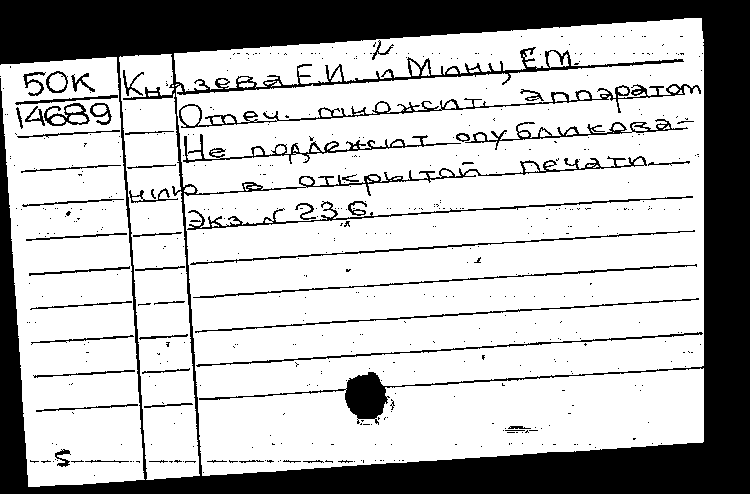 2
50К Князева Е.И. и Минц Е.М.
14689 Отеч. множит. аппаратом
Не подлежит опубликова-
нию в открытой печати.
Экз. № 236.
S